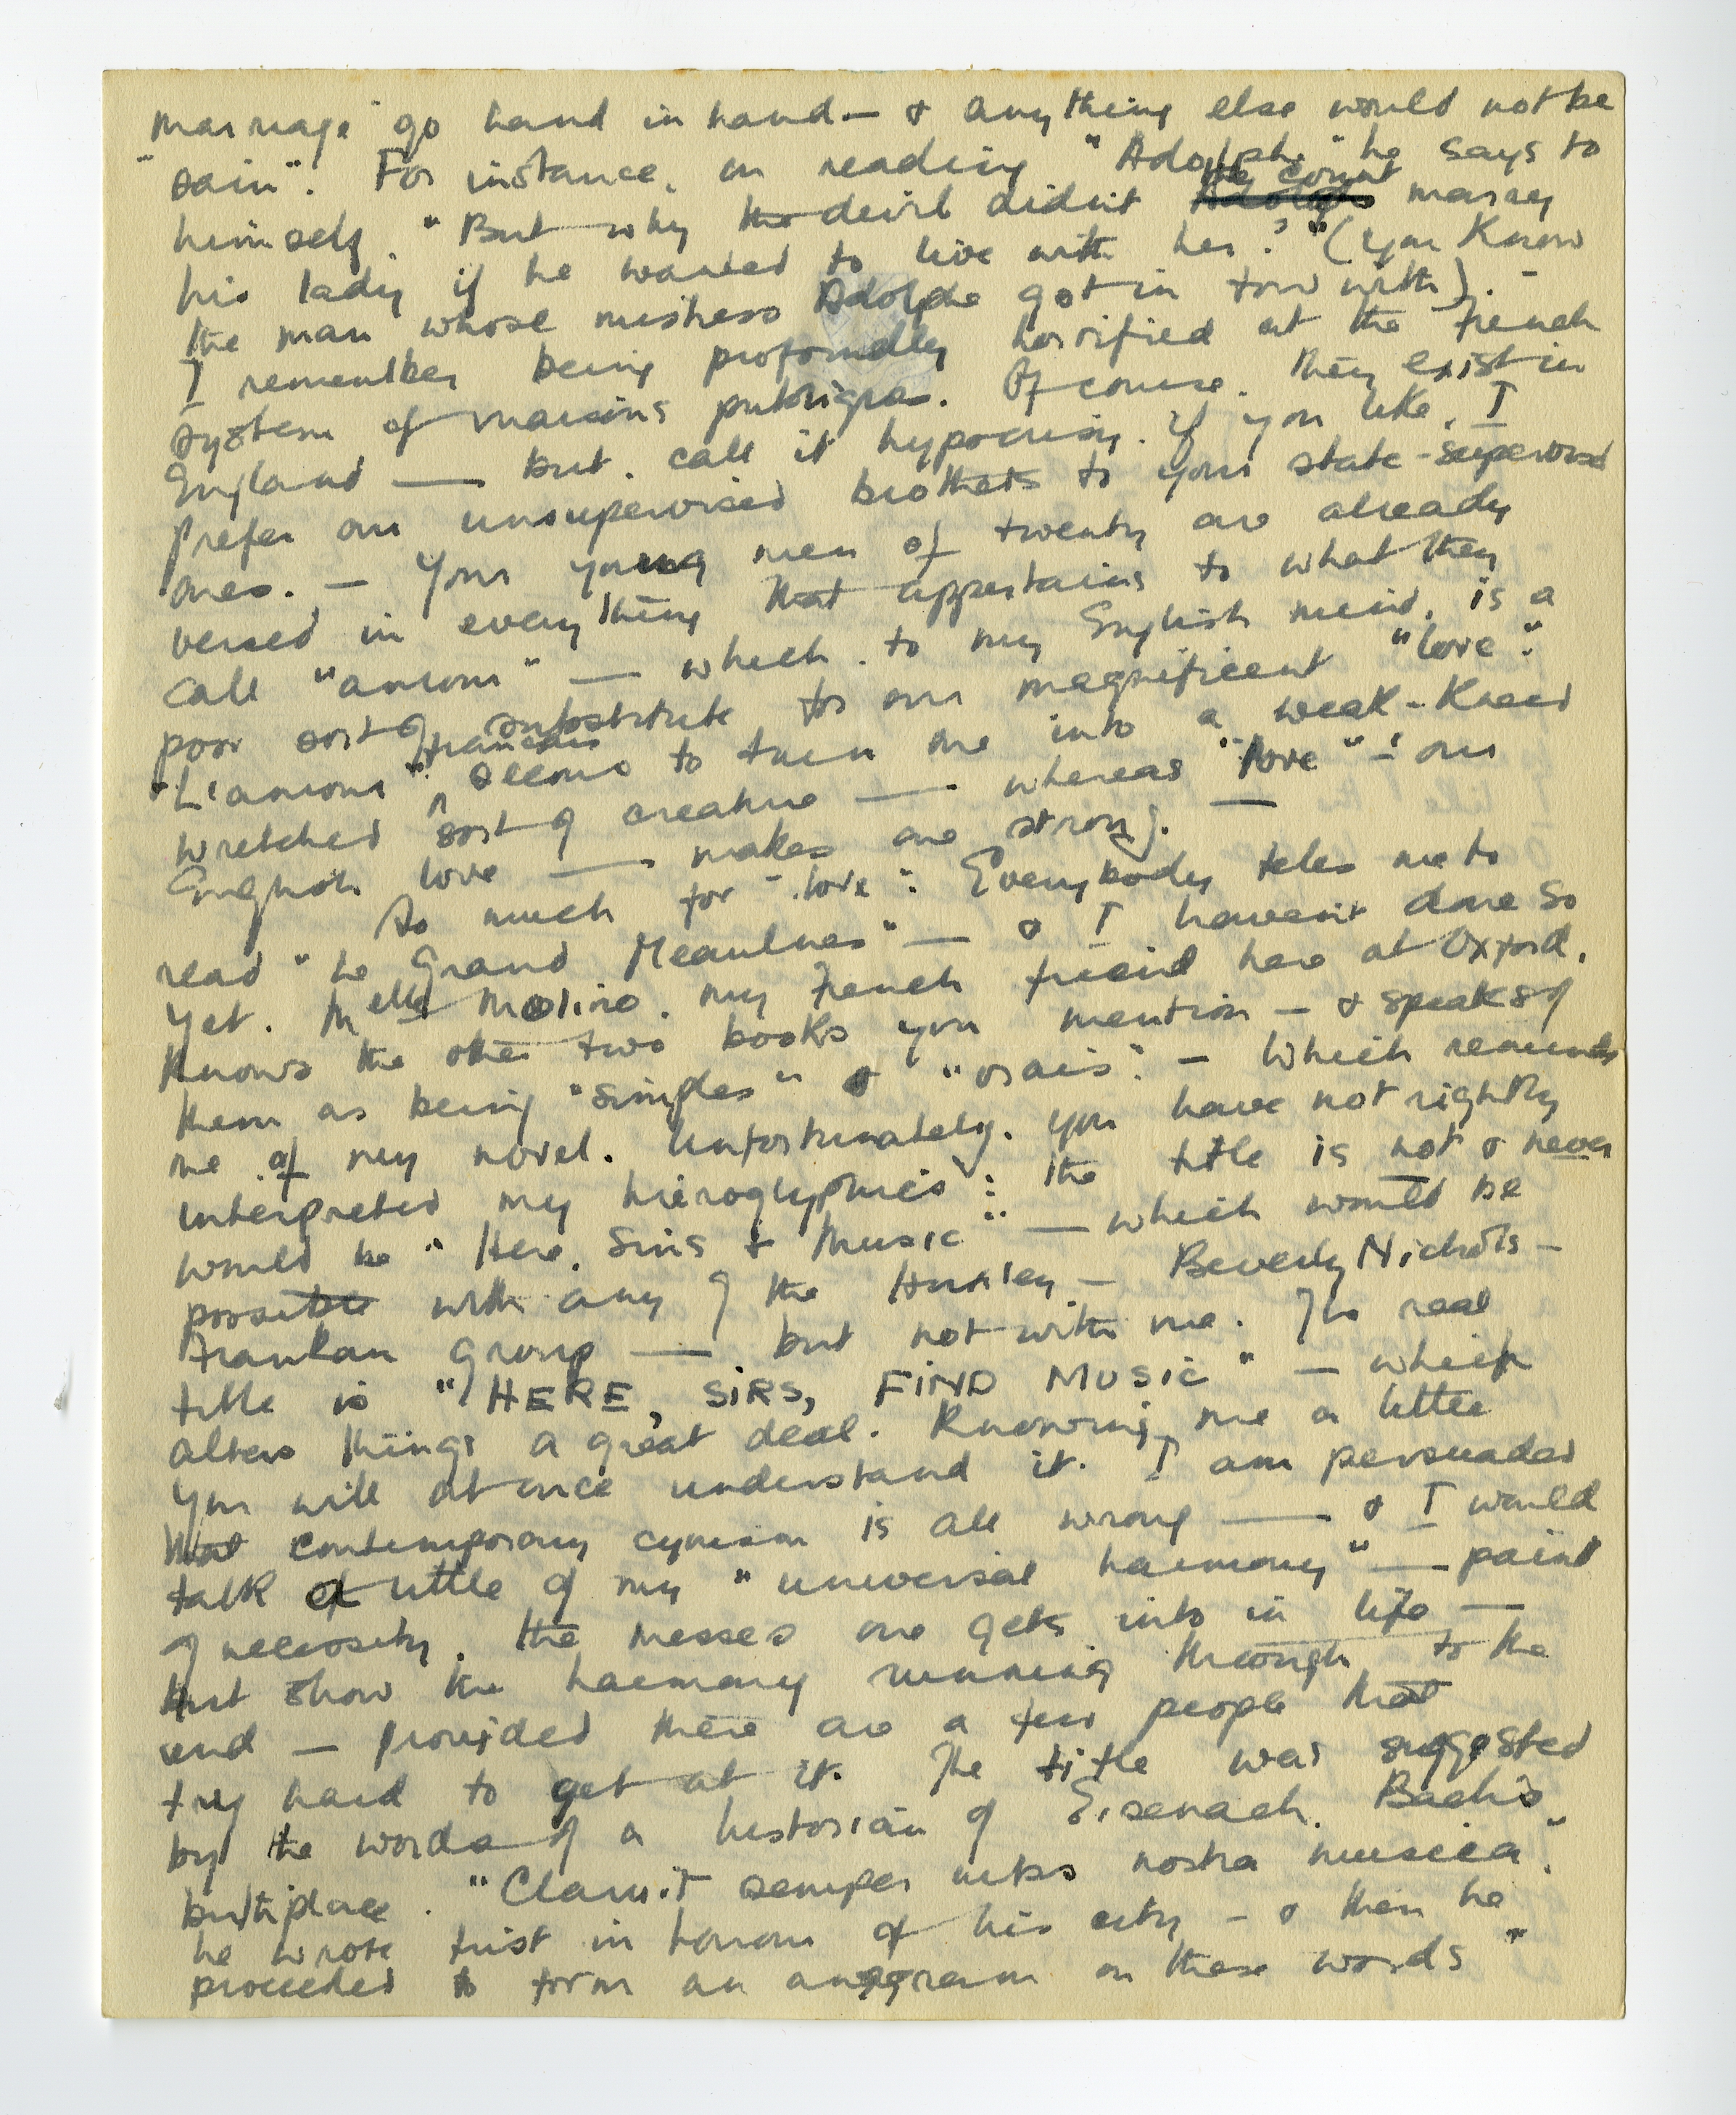 marriage" go hand in hand — & anything else would not be
"sain". For instance, on reading "Adolphe" he says to
himself, "But why the devil didn't the count marry
his lady if he wanted to live with her?" (you know
the man whose mistress Adolphe got in tow with). —
I remember being profoundly horrified at the French
system of maisons publiques. Of course, they exist in
England — but, call it hypocrisy if you like, I
prefer our unsupervised brothels to your state-supervised
ones. — Your young men of twenty are already
versed in everything that appertains to what they
call "amour" — which, to my English mind, is a
poor sort of substitute for our magnificent "love".
"L'amour" français seems to turn one into a weak-kneed
wretched sort of creature — whereas "love" — our
English love — makes one strong. —
So much for "love". Everybody tells me to
read "Le Grand Meaulnes" — & I haven't done so
yet. Melle Molino, my French friend here at Oxford,
knows the other two books you mention — & speaks of
them as being "simples" & "vrais". — Which reminds
me of my novel. Unfortunately, you have not rightly
interpreted my hieroglyphics: the title is not & never
would be "Here, Sins & Music" — which would be
possible with any of the Huxley — Beverly Nichols —
Frankau group — but not with me. The real
title is "HERE, SIRS, FIND MUSIC" — which
alters things a great deal. Knowing me a little
you will at once understand it. I am persuaded
that contemporary cynism is all wrong — & I would
talk a little of my "universal harmony" — paint
of necessity, the messes one gets into in life —
but show the harmony running through to the
end — provided there are a few people that
try hard to get at it. The title was suggested
by the words of a historian of Eisenach, Bach's
birthplace. "Claruit semper urbs nostra musica",
he wrote first in honour of his city — & then he
proceeded to form an anagram on these words "